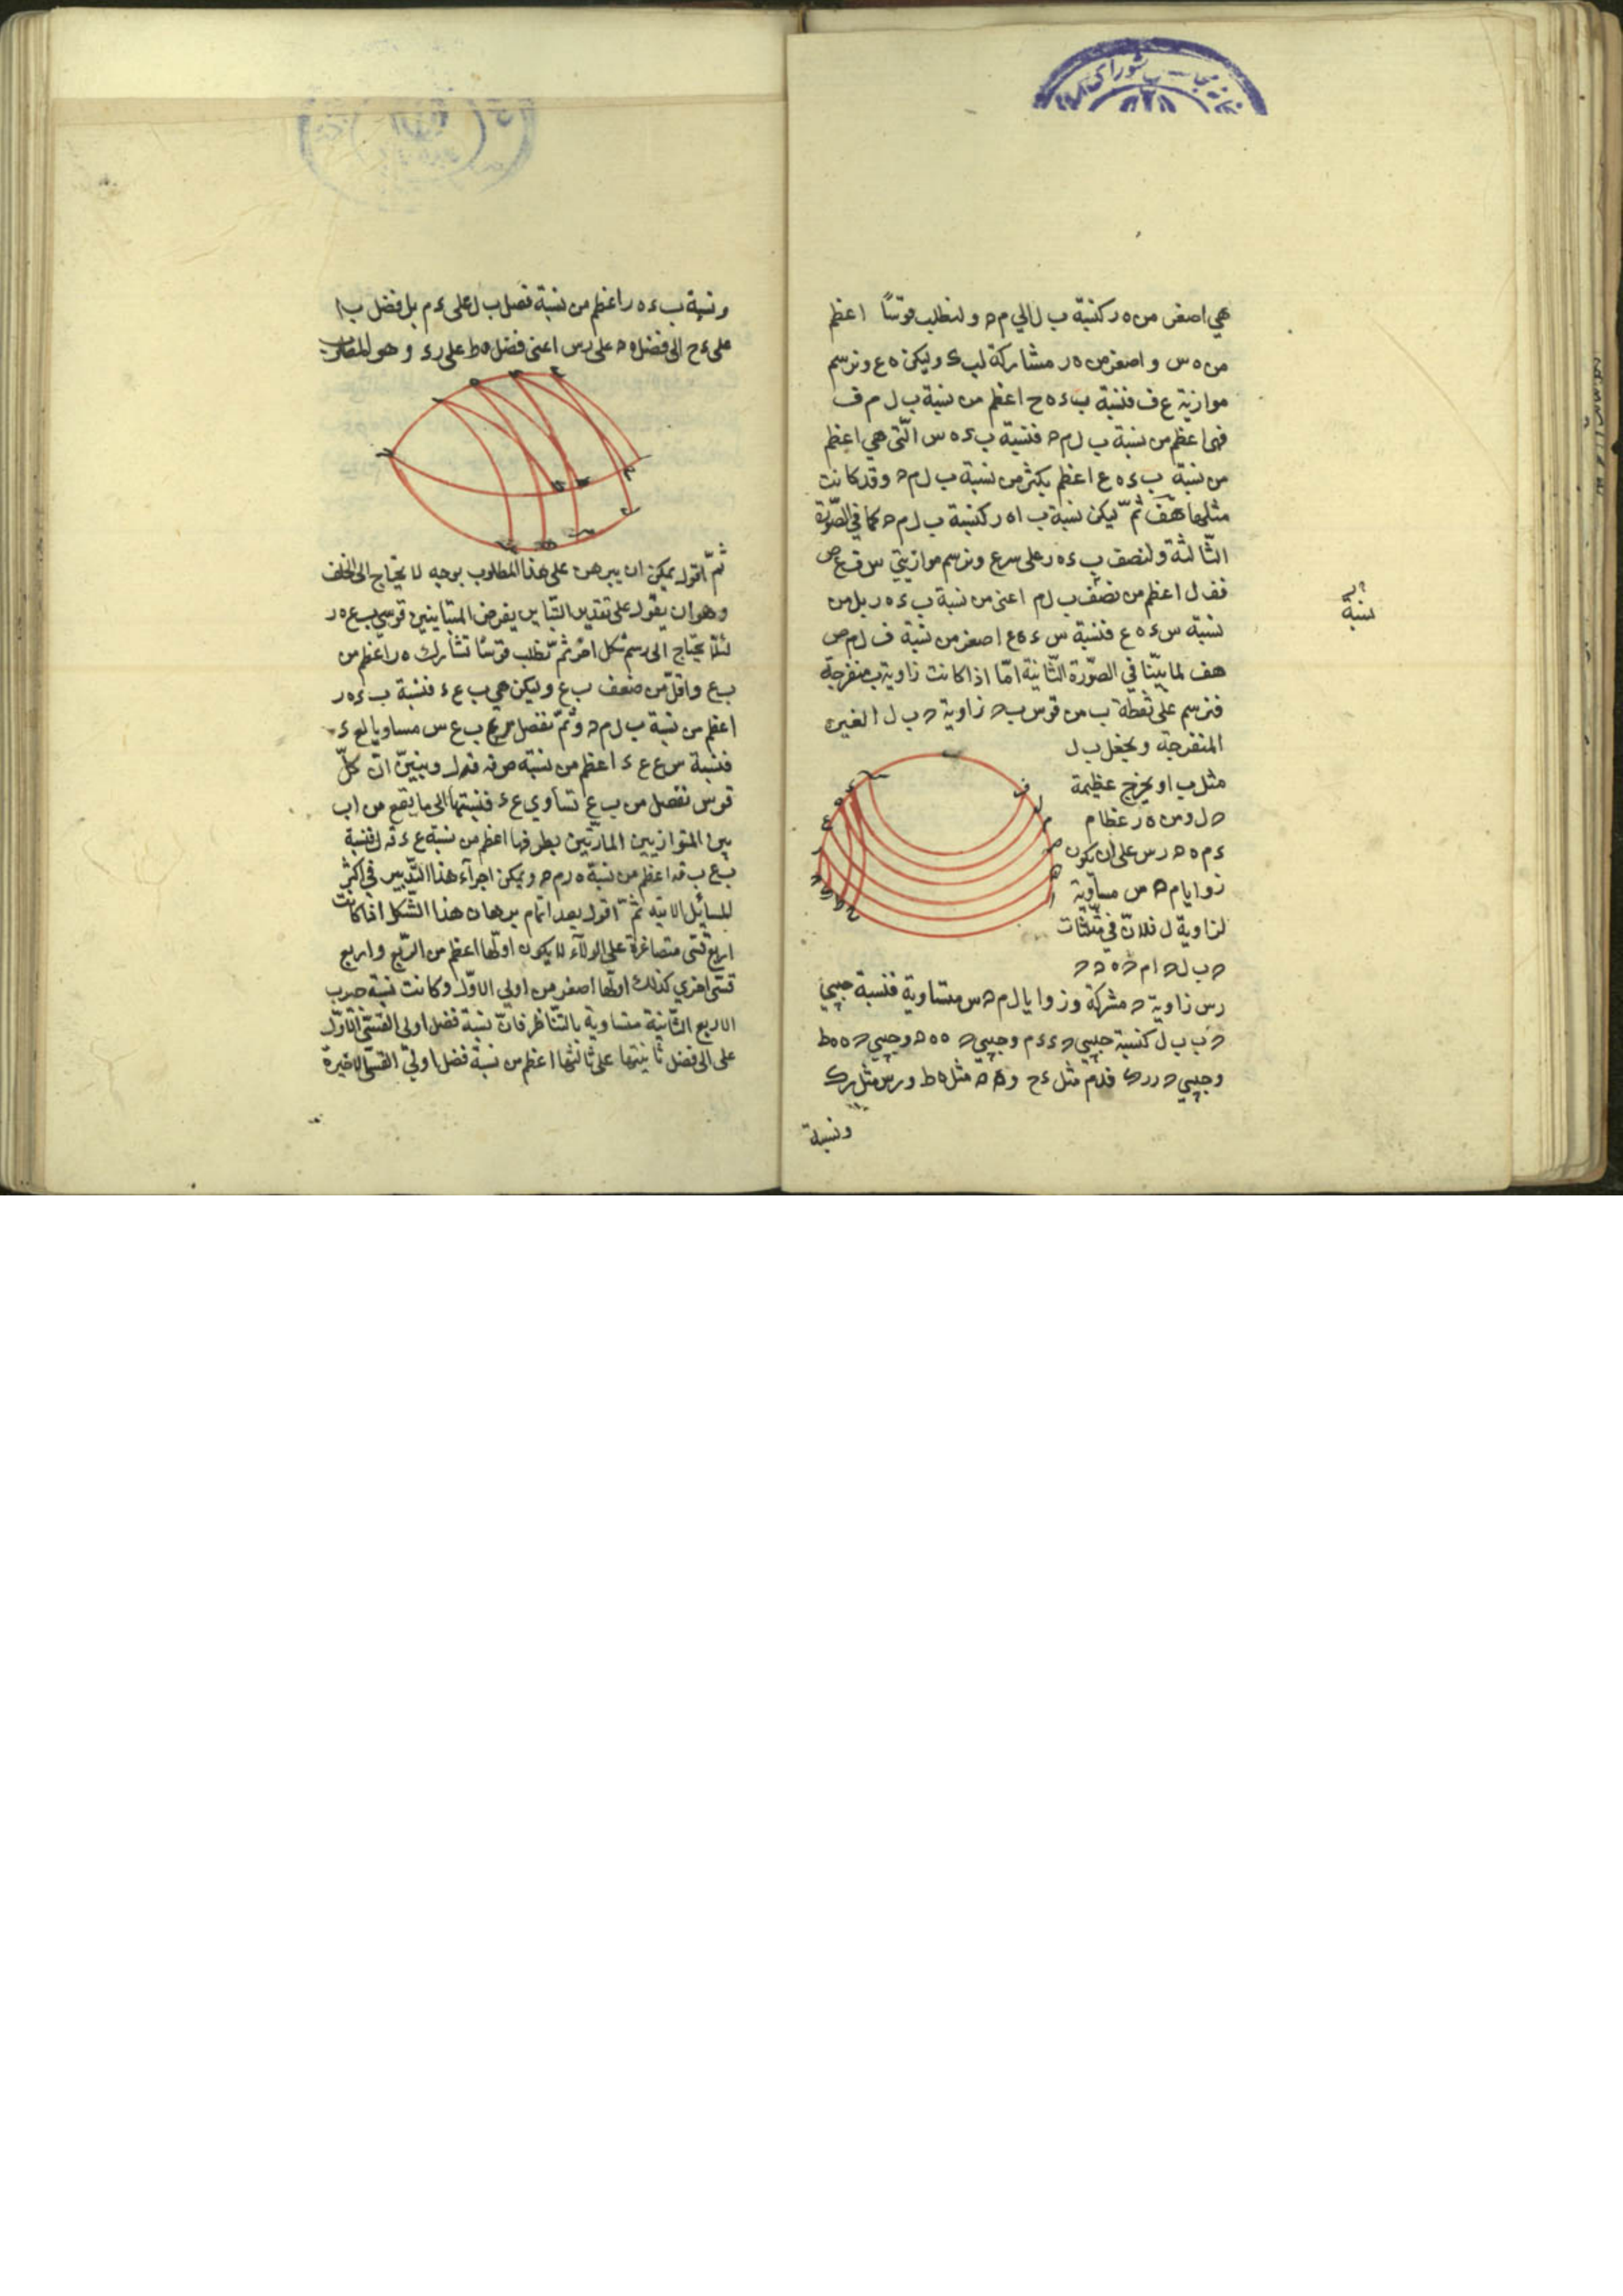 هي اصغر من ه ر كنسبة ب ل الي م ﺣ ولنطلب قوسًا اعظم
من ه س واصغر من ه ر مشاركة لب ء وليكن ه ع ونرسم
موازية ع ف فنسبة ب ء ه ح اعظم من نسبة ب ل م ف
فهى اعظم من نسبة ب ل م ﺣ فنسبة ب ء ه س الّتى هي اعظم
من نسبة ب ء ه ع اعظم بكثير من نسبة ب ل م ﺣ وقد كانت
مثلها هف ثمّ ليكن نسبة ب ا ه ر كنسبة ب ل م ﺣ كما في الصّورة
الثّالثة ولنصف ب ء ه ر على س ع ونرسم موازيتي س ف ع ص
فف ل اعظم من نصف ب ل م اعنى من نسبة ب ء ه ر بل من
نسبة س ء ه ع فنسبة س ء ه ع اصغر من نسبة ف ل م ص
هف لما بيّنا في الصّورة الثّانية امّا اذا كانت زاوية ب منفرجة
فنرسم على نقطة ب من قوس ب ﺣ زاوية ﺣ ب ل الغير
المنفرجة ونجعل ب ل
مثل ب ا ونخرج عظيمة
ﺣ ل ومن ه ر عظام
ء م ه ﻫ ر س على ان يكون
زوايا م ﻫ س مساوية
لزاوية ل فلانّ في مثلثات
ﺣ ب ل ﺣ ا م ﺣ ه ﺣ ﺣ
ر س زاوية ﺣ مشركة وزوايا ل م ﻫ س متساوية فنسبة جيبي
ﺣ ب ب ل كنسبة جيبي ﺣ ء ء م وجيبي ﺣ ه ه ﻫ وجيبي ﺣ ه ه ط
وجيبي ﺣ ر ر ك فل م مثل ء ح و ﻫ ﺣ مثل ه ط و ر س مثل ر ك
ونسبة
نسبة
ونسبة ب ء ه ر اعظم من نسبة فضل ب ل على ء م بل فضل ب ا
على ء ح الى فضل ه ﺣ على ر س اعنى فضل ه ط على ر ء وهو المطلوب
ثمّ اقول يمكن ان يبرهن على هذا المطلوب بوجه لا يحتاج الى الخلف
وهو ان يقول على تقدير التّباين يفرض المتباينين قوسي ب ع ه ر
لئلّا يحتاج الى رسم شكل اخر ثمّ نطلب قوسًا تشارك ه ر اعظم من
ب ع واقلّ من ضعف ب ع وليكن هي ب ع ء فنسبة ب ء ه ر
اعظم من نسبة ب ل م ﺣ وثمّ نفصل من ب ع س مساويا لع ء
فنسبة س ع ع ء اعظم من نسبة ص ف ف ل ونبيّن انّ كلّ
قوس نفصل من ب ع تساوي ع ء فنسبتها الى ما يقع من ا ب
بين المتوازيين المارّتين بطرفها اعظم من نسبة ع ء ف ل فنسبة
ب ع ب ف اعظم من نسبة ه ر م ﺣ ويمكن اجراء هذا التّدبير في اكثر
المسائل الاتيه ثمّ اقول بعد اتمام برهان هذا الشّكل اذا كانت
اربع قسّى متصاغرة على الولآء لا يكون اولها اعظم من الرّبع واربع
قسّى اخري كذلك اولها اصغر من اولي الاوّل وكانت نسبة جيوب
الاربع الثّانية متساوية بالتّناظر فانّ نسبة فضل اولى القسّى الاوّل
على الى فضل ثانيتها على ثالثها اعظم من نسبة فضل اولي القسّى الاخيرة